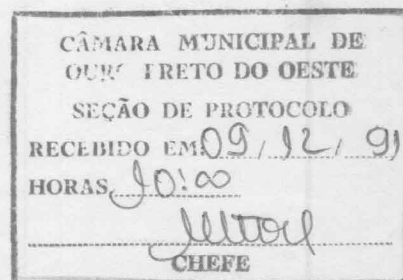 CÂMARA MUNICIPAL DE
OURO PRETO DO OESTE
SEÇÃO DE PROTOCOLO
RECEBIDO EM 09/12/91
HORAS 10:00
CHEFE